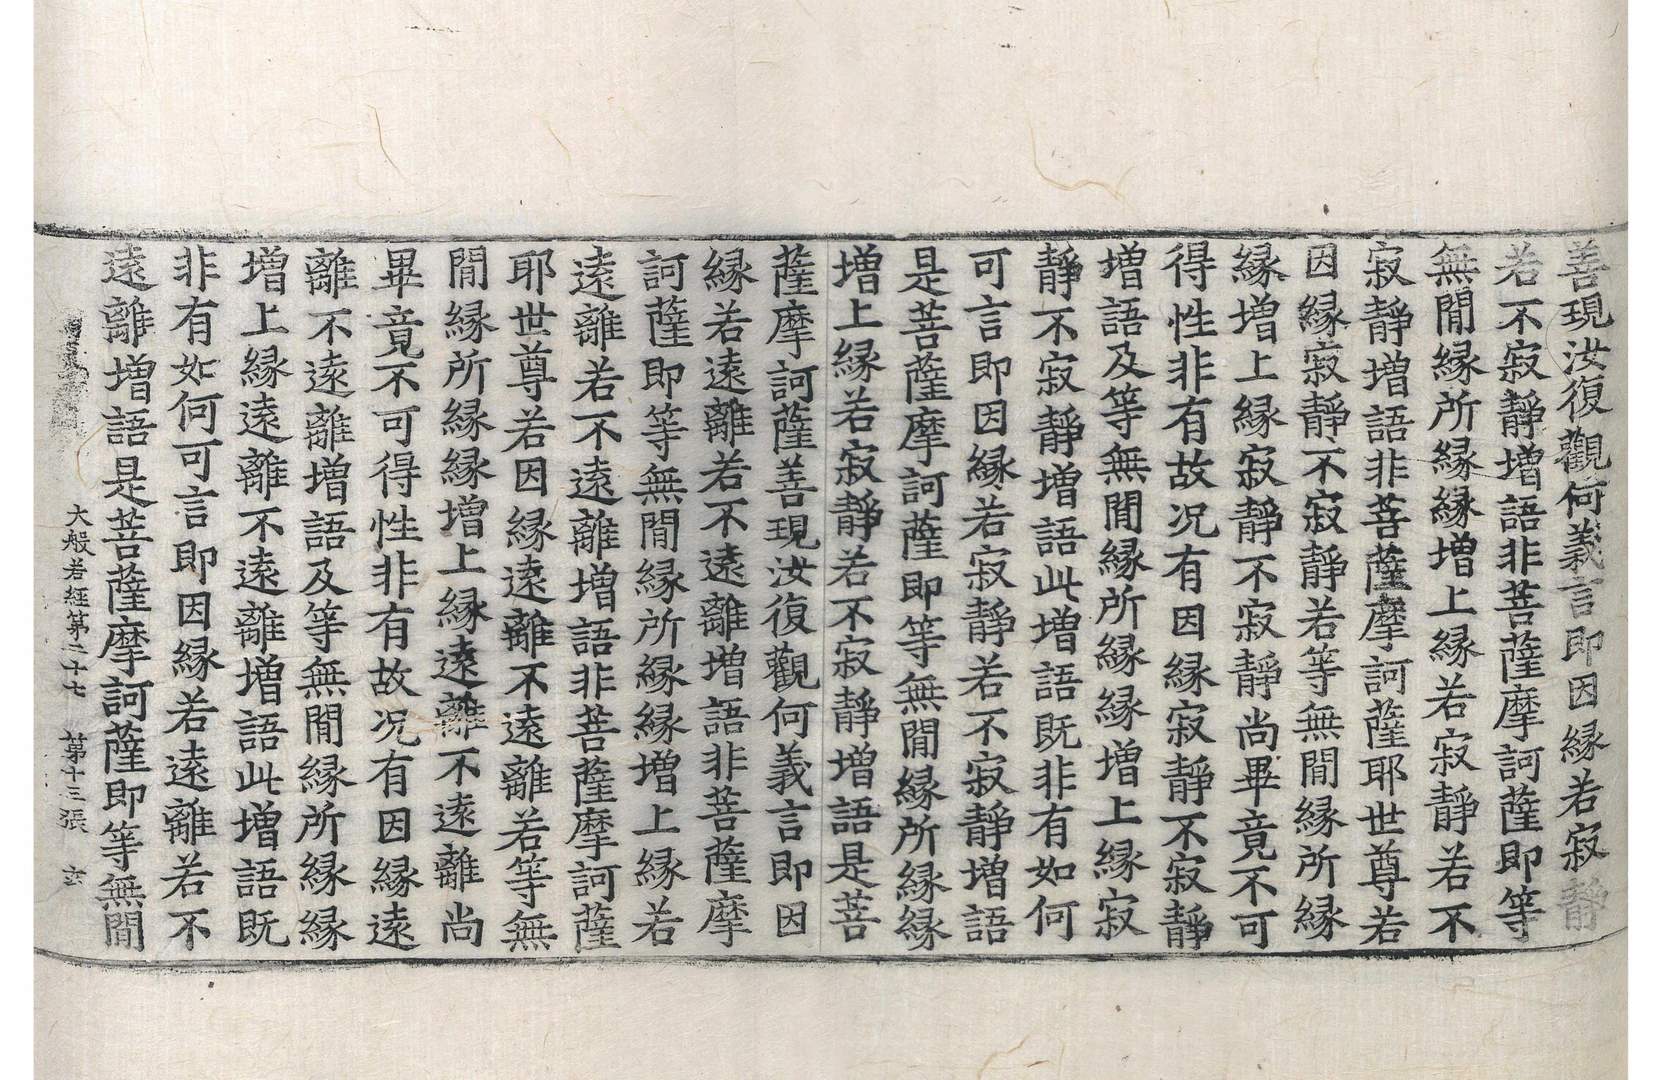 善現汝復觀何義言即因縁若寂靜
若不寂靜増語非菩薩摩訶薩即等
無閒縁所縁縁増上縁若寂靜若不
寂靜増語非菩薩摩訶薩耶世尊若
因縁寂靜不寂靜若等無閒縁所縁
縁増上縁寂靜不寂靜尚畢竟不可
得性非有故况有因縁寂靜不寂靜
増語及等無閒縁所縁縁増上縁寂
靜不寂靜増語此増語既非有如何
可言即因縁若寂靜若不寂靜増語
是菩薩摩訶薩即等無閒縁所縁縁
増上縁若寂靜若不寂靜増語是菩
薩摩訶薩善現汝復觀何義言即因
縁若遠離若不遠離増語非菩薩摩
訶薩即等無閒縁所縁縁増上縁若
遠離若不遠離増語非菩薩摩訶薩
耶世尊若因縁遠離不遠離若等無
閒縁所縁縁増上縁遠離不遠離尚
畢竟不可得性非有故况有因縁遠
離不遠離増語及等無閒縁所縁縁
増上縁遠離不遠離増語此増語既
非有如何可言即因縁若遠離若不
遠離増語是菩薩摩訶薩即等無閒
大般若經第二十七 第十三張 玄